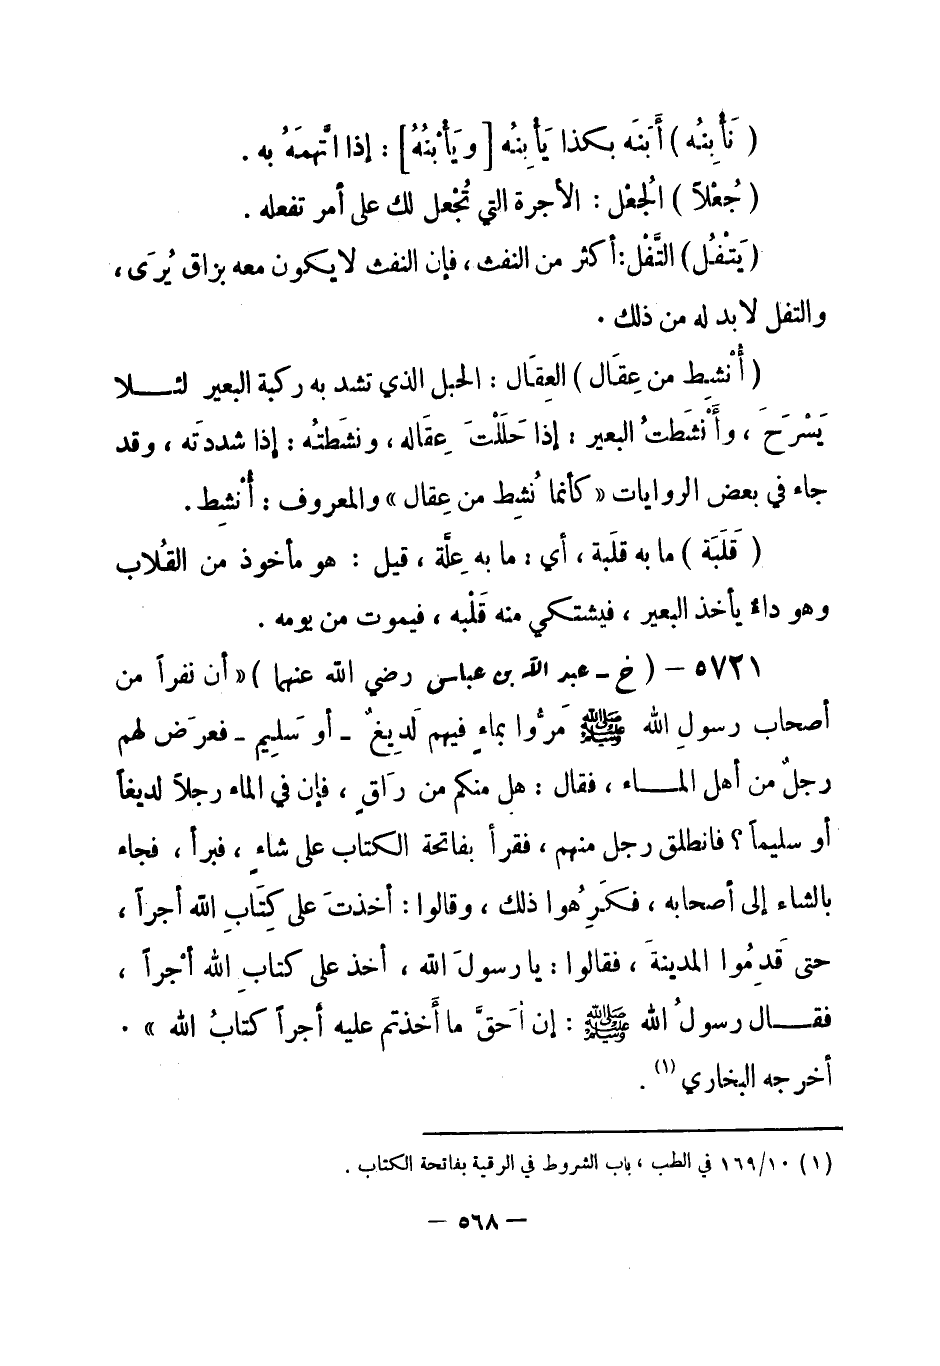 ( نَأْبِنُه ) أَبَنَه بكذا يَأْبِنُه [ ويَأْبُنُهُ ] : إذا اتَّهمَهُ به .
( جُعْلاً ) الجُعْل : الأجرة التي تُجْعل لك على أمر تفعله .
( يَتْفُل ) التَّفْل : أكثر من النفث ، فإن النفث لا يكون معه بزاق يُرَى ،
والتفل لابد له من ذلك .
( أُنْشِط من عِقَال ) العِقَال : الحبل الذي تشد به ركبة البعير لئلا
يَسْرَحَ ، وأَنْشَطتُ البعير : إذا حَلَلْتَ عِقَاله ، ونشَطتُه : إذا شددتَه ، وقد
جاء في بعض الروايات « كأنما نُشِط من عِقال » والمعروف : أُنْشِط .
( قَلَبَة ) ما به قلَبة ، أي : ما به عِلَّة ، قيل : هو مأخوذ من القُلاب
وهو داءٌ يأخذ البعير ، فيشتكي منه قَلْبه ، فيموت من يومه .
٥٧٢١ – ( خ – عبد الله بن عباس رضي الله عنهما ) « أن نفراً من
أصحاب رسولِ الله ﷺ مَرُّوا بماءٍ فيهم لَدِيغٌ – أو سَلِيم – فعرَض لهم
رجلٌ من أهل الماء ، فقال : هل منكم من رَاقٍ ، فإن في الماء رجلاً لديغاً
أو سليماً ؟ فانطلق رجل منهم ، فقرأ بفاتحة الكتاب على شاءٍ ، فبرأ ، فجاء
بالشاء إلى أصحابه ، فكَرِهُوا ذلك ، وقالوا : أخذتَ على كِتَابِ الله أجراً ،
حتى قَدِمُوا المدينةَ ، فقالوا : يا رسولَ الله ، أخذ على كتابِ الله أجراً ،
فقال رسولُ الله ﷺ : إن أَحقَّ ما أَخذتم عليه أجراً كتابُ الله » .
أخرجه البخاري (١) .
(١) ١٦٩/١٠ في الطب ، باب الشروط في الرقية بفاتحة الكتاب .
— ٥٦٨ —